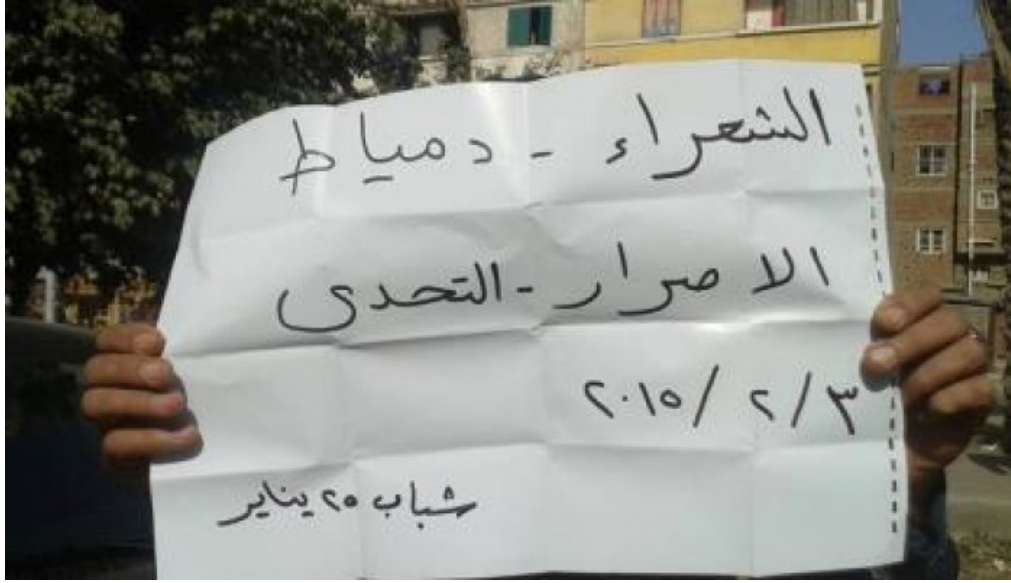 الشعراء - دمياط
الاصرار - التحدى
٣ / ٢ / ٢٠١٥
شباب ٢٥ يناير